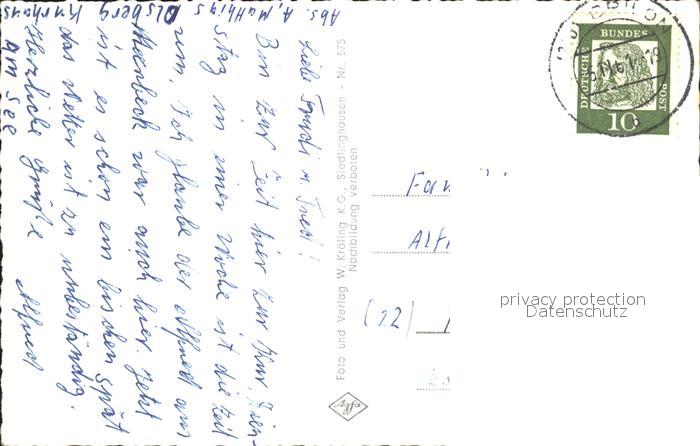 Abs. A. Matthias
Olsberg
Kurhaus
am See
Liebe Trudi u. Fred!
Bin zur Zeit hier zur Kur. Dien-
stag in einer Woche ist die Zeit
um. Ich glaube der Alfred aus
war auch hier. Jetzt
ist es schon ein bischen spät
das Wetter ist zu unbeständig.
Herzliche Grüße
Alfred
Foto und Verlag W. Kräling K.G., Siedlinghausen - Nr. 575
Nachbildung verboten
Agfa
DEUTSCHE
BUNDES
POST
10
Fam
(22)
privacy protection
Datenschutz